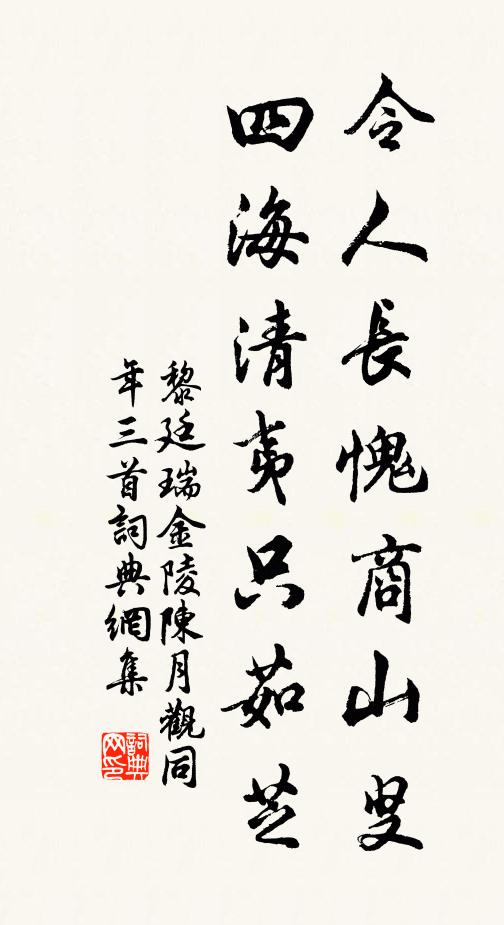 令人長愧商山叟
四海清夷只茹芝
黎廷瑞金陵陳月觀同
年三首詞典網集
詞典網印